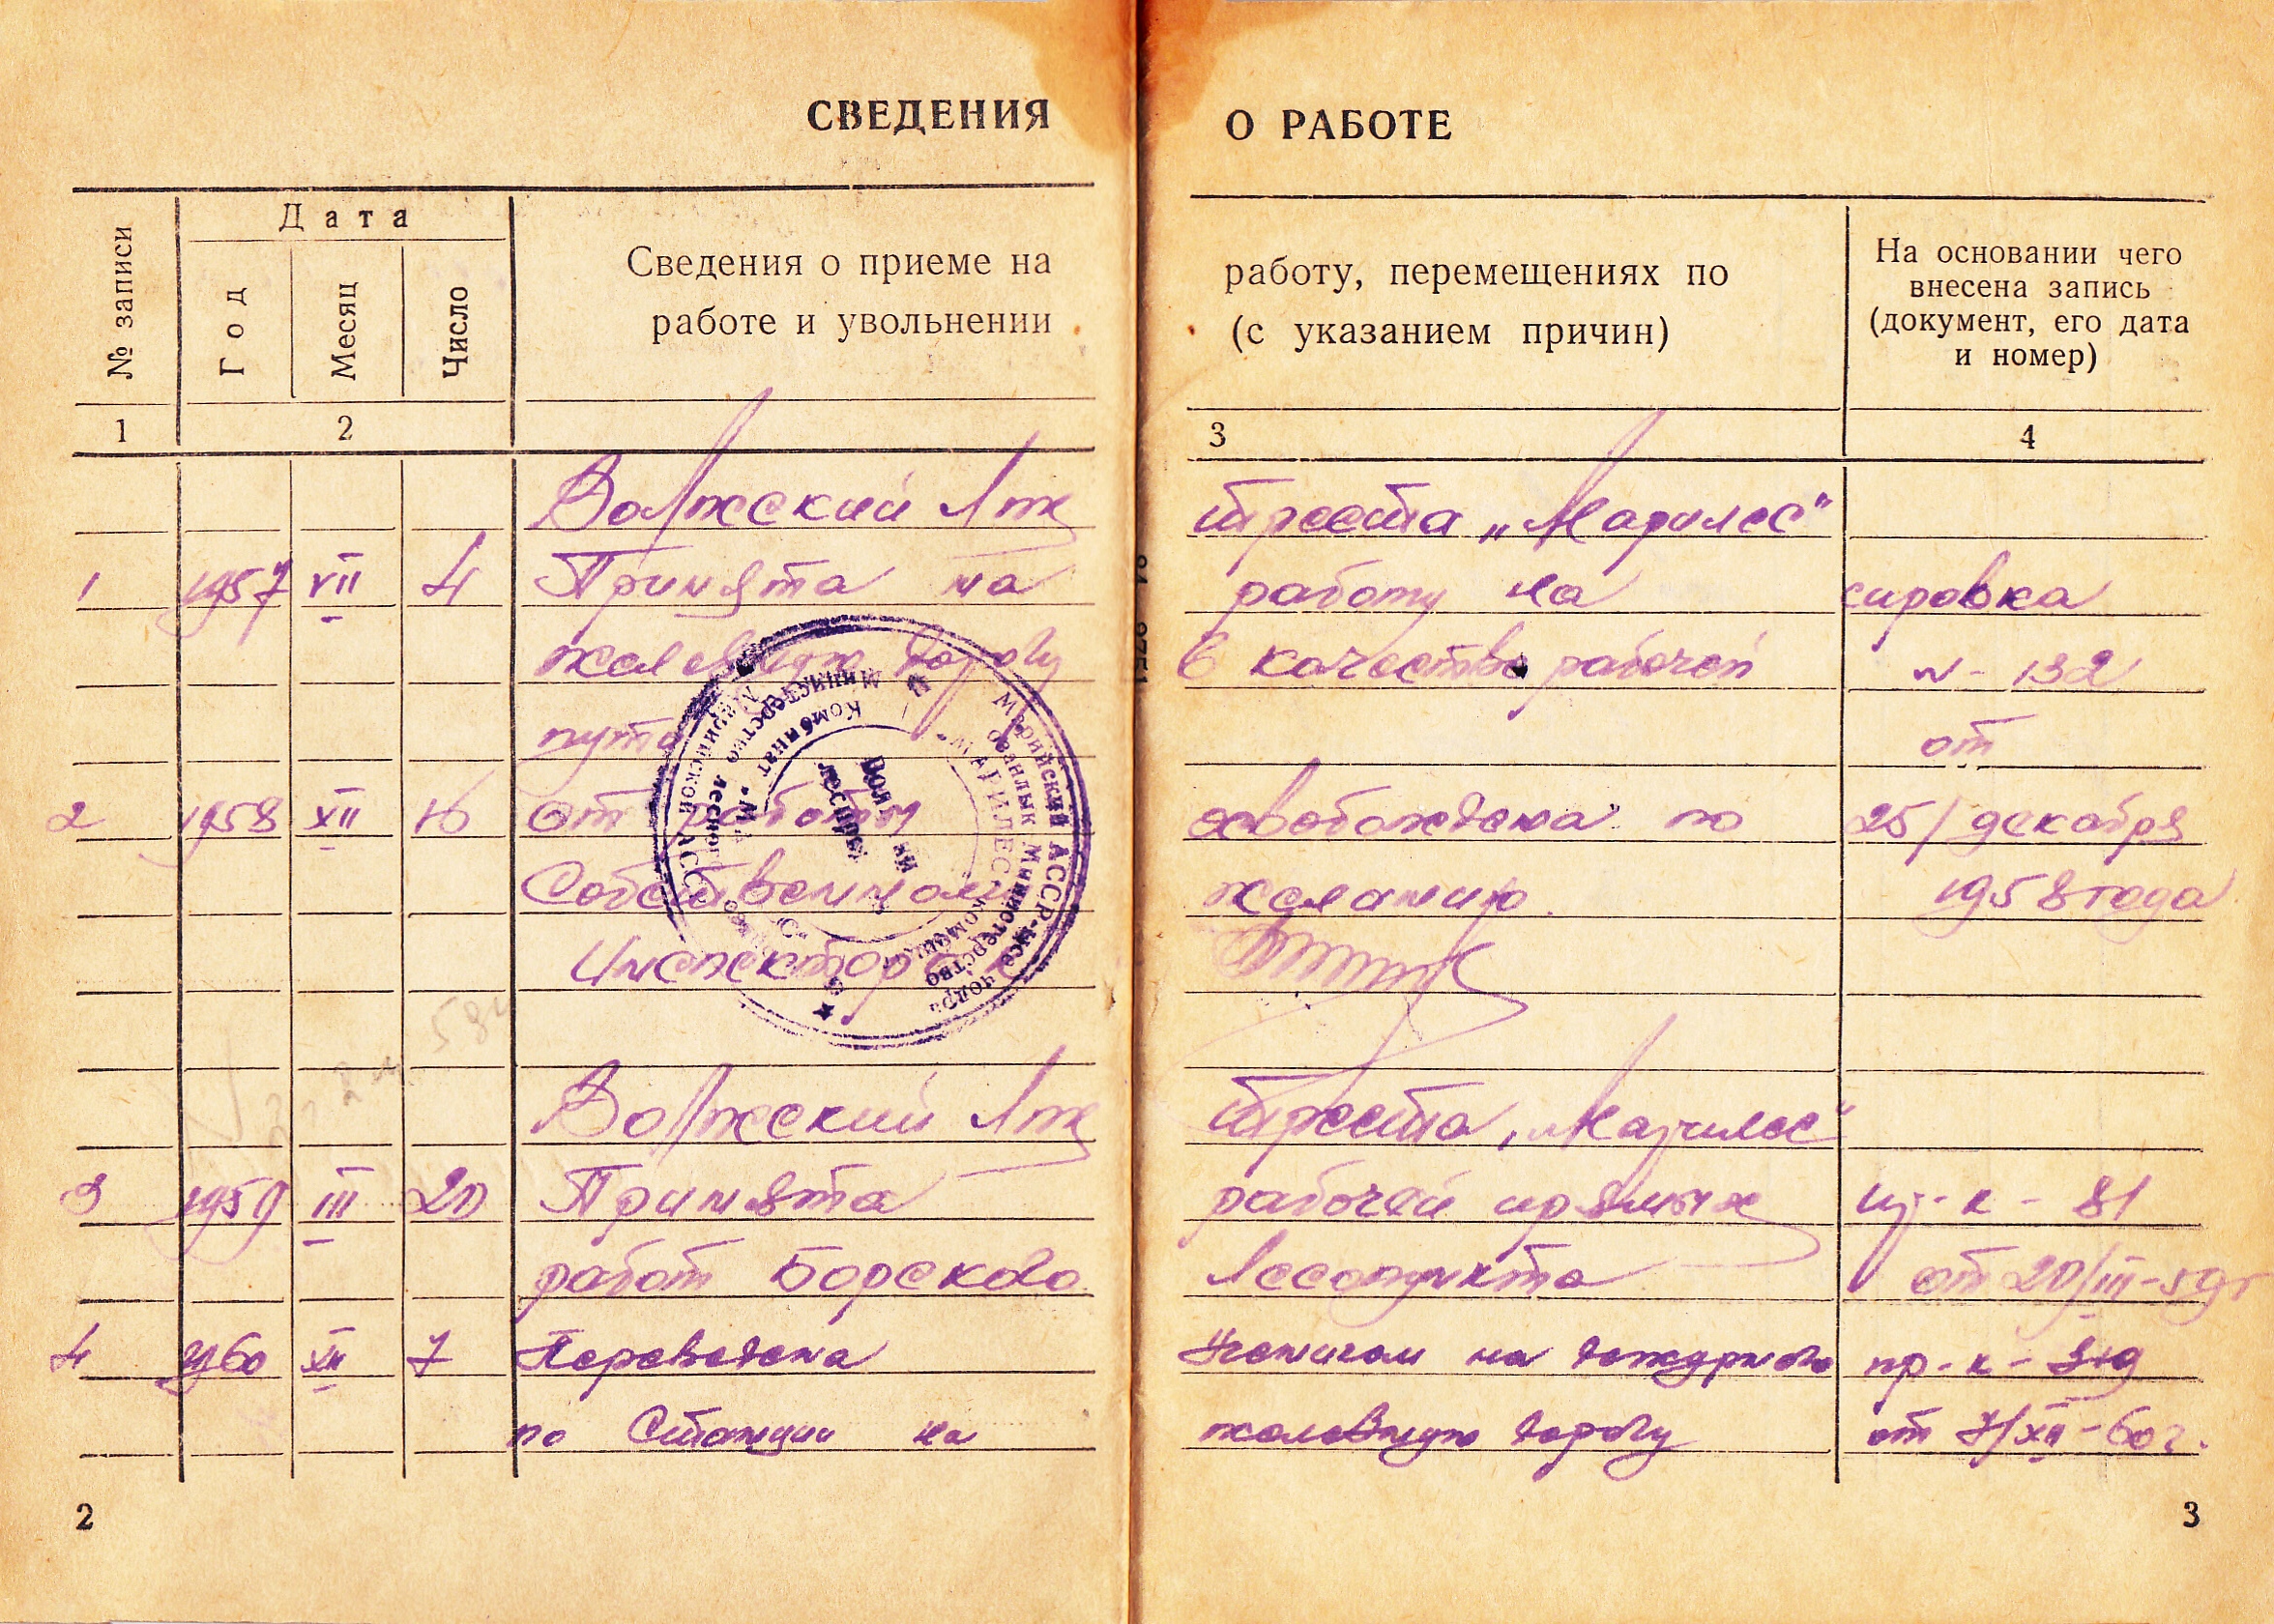 СВЕДЕНИЯ О РАБОТЕ
№ записи
Дата
Год
Месяц
Число
Сведения о приеме на работу, перемещениях по
работе и увольнении (с указанием причин)
На основании чего
внесена запись
(документ, его дата
и номер)
1 2 3 4
Волжский Лпх треста „Марилес"
1 1957 VII 4 Принята на работу на
железную дорогу в качестве рабочей № - 132
пути от
2 1958 XII От работы освобождена по 25/декабря
Собственному желанию. 1958 года
Инспектор
Волжский Лпх треста „Марилес"
3 1959 III 20 Принята рабочей прямых пр-к - 81
работ Борсково Лесопункта от 20/III-59г
4 1960 XII 7 Переведена Ученицей на дежурного пр-к-
по Станции на железную дорогу от 7/XII-60г.
Марийской АССР
Министерство лесной
Комбинат
Марийский АССР-ысе чодра
Министерство
„МАРИЛЕС"
2
3